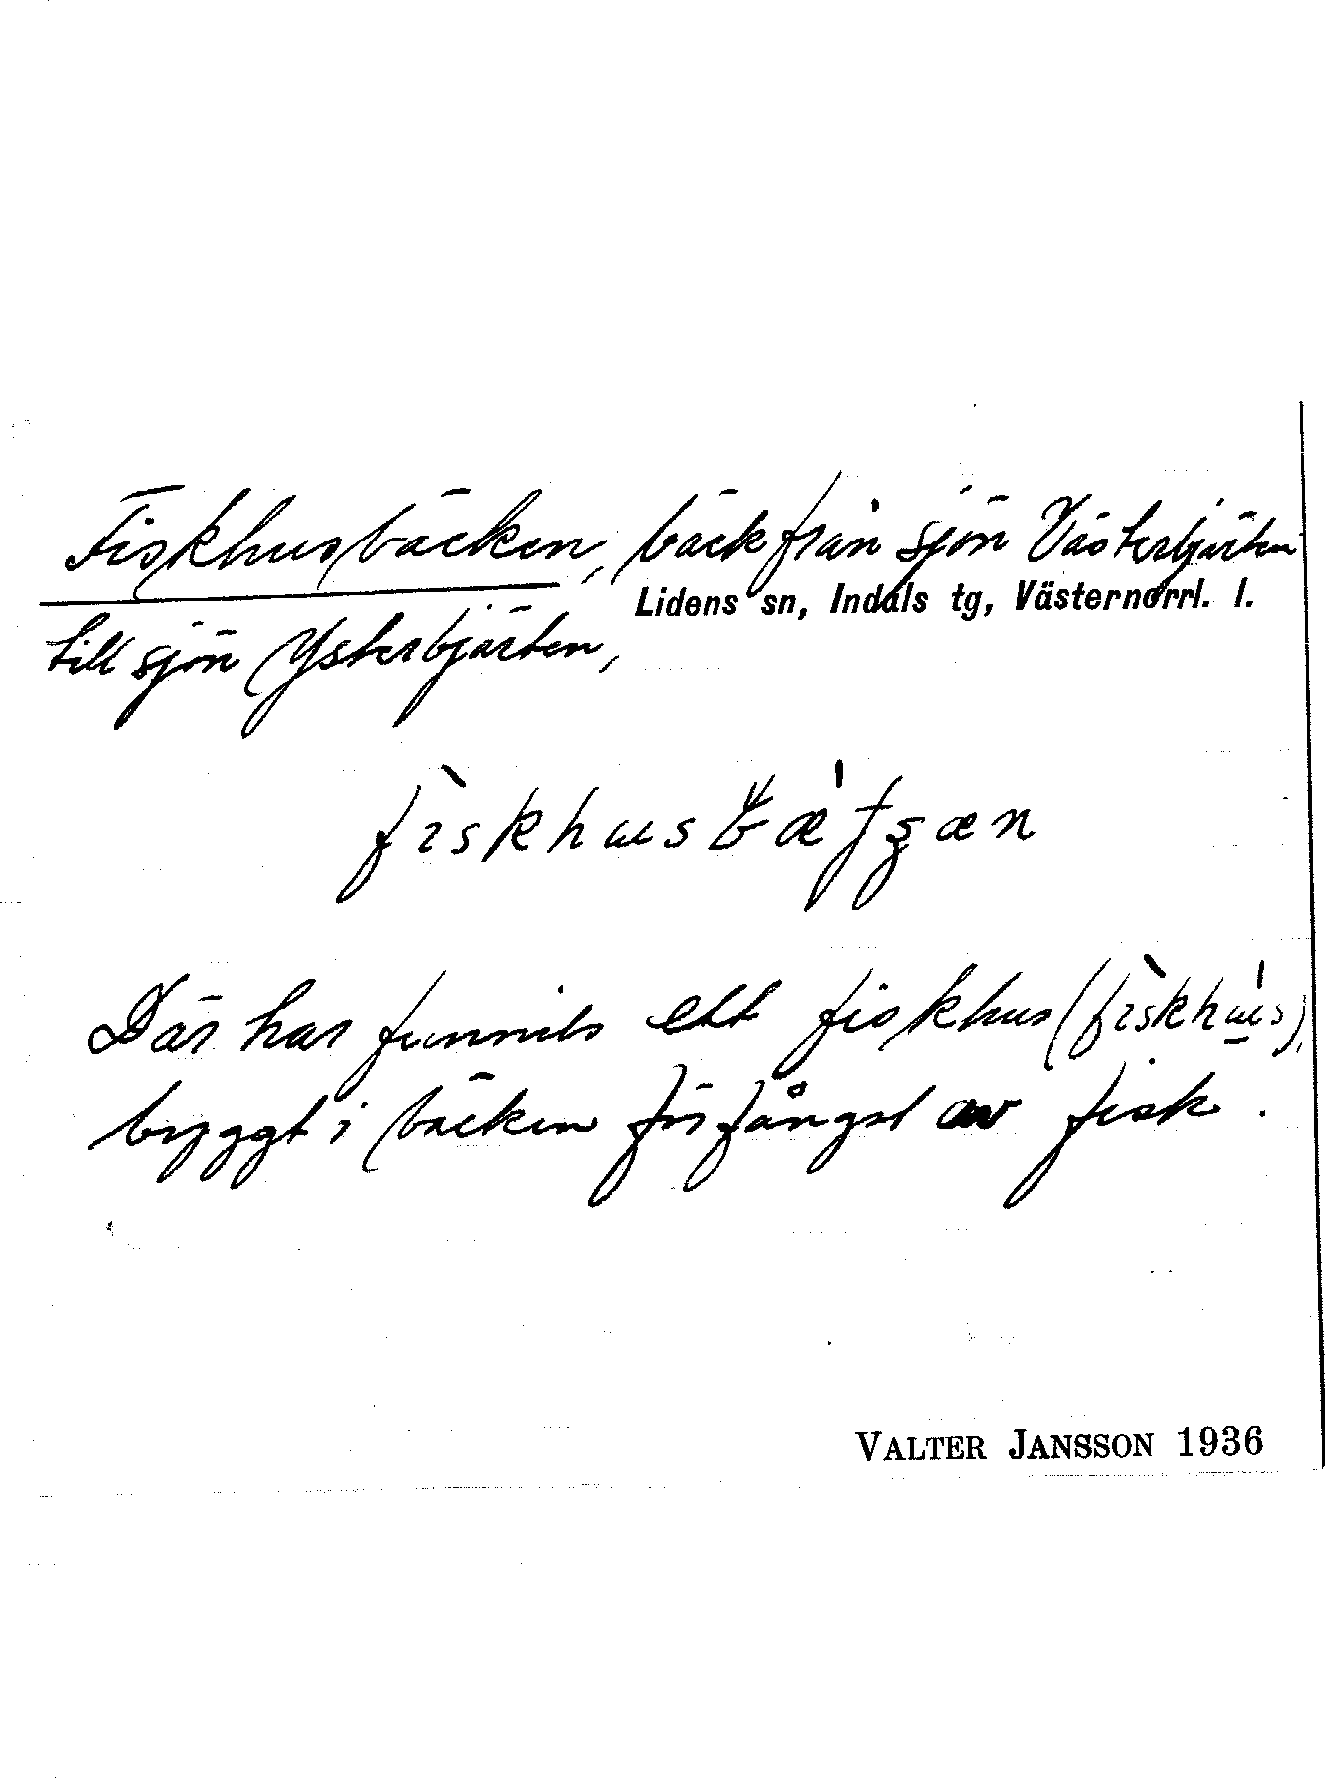 Fiskhusbäcken, bäck från sjön Västerbjärten
Lidens sn, Indals tg, Västernorrl. l.
till sjön Ysterbjärten,
Där har funnits ett fiskhus
byggt i bäcken för fångst av fisk.
VALTER JANSSON 1936